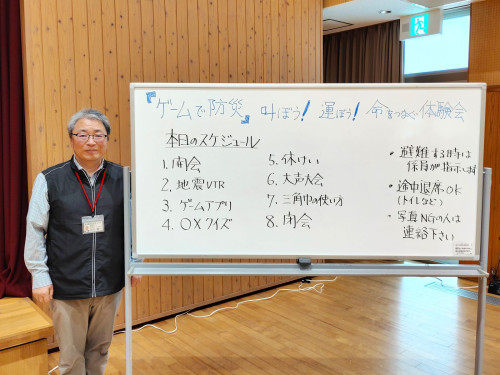 『ゲームで防災』叫ぼう!運ぼう!命をつなぐ体験会
本日のスケジュール
1.開会
2.地震VTR
3.ゲームアプリ
4.OXクイズ
5.休けい
6.大声大会
7.三角巾の使い方
8.閉会
・避難する時は
係員が指示します
・途中退席OK
(トイレなど)
・写真NGの人は
連絡下さい